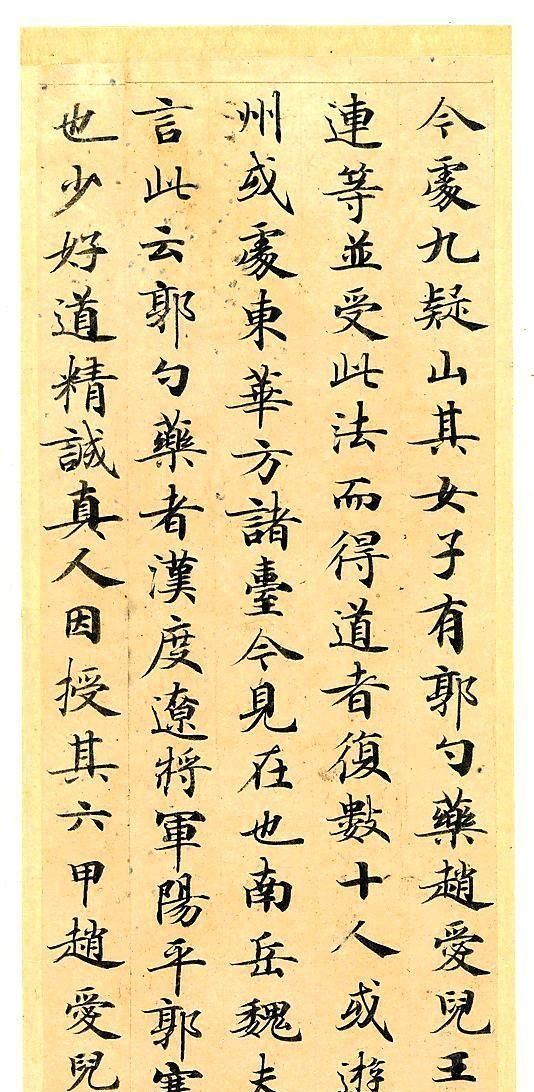 今處九疑山其女子有郭勺藥趙愛兒王
連等並受此法而得道者復數十人或遊
州或處東華方諸臺今見在也南岳魏夫
言此云郭勺藥者漢度遼將軍陽平郭騫
也少好道精誠真人因授其六甲趙愛兒